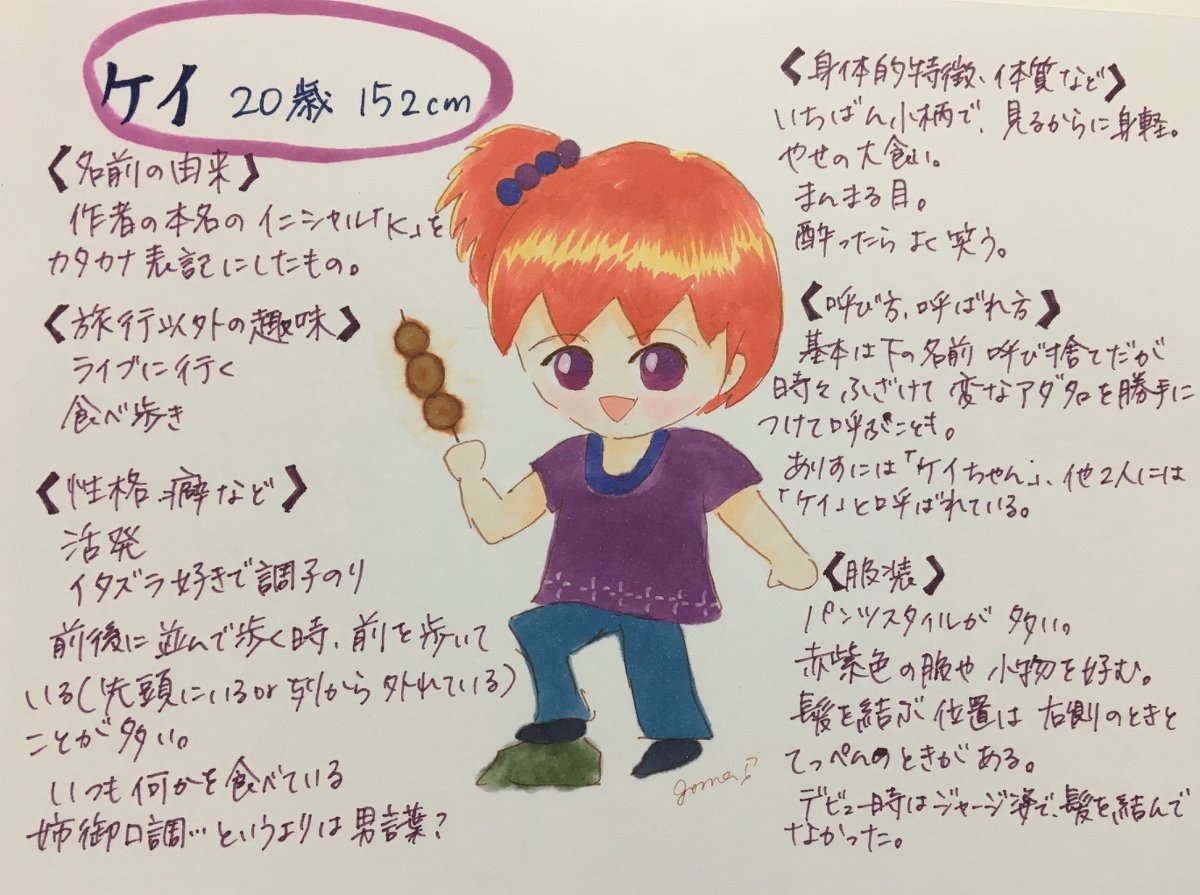 ケイ 20歳 152cm
《名前の由来》
作者の本名のイニシャル「K」を
カタカナ表記にしたもの。
《旅行以外の趣味》
ライブに行く
食べ歩き
《性格・癖など》
活発
イタズラ好きで調子のり
前後に並んで歩く時、前を歩いて
いる(先頭にいるor列から外れている)
ことが多い。
いつも何かを食べている
姉御口調…というよりは男言葉?
《身体的特徴、体質など》
いちばん小柄で、見るからに身軽。
やせの大食い。
まんまる目。
酔ったらよく笑う。
《呼び方、呼ばれ方》
基本は下の名前呼び捨てだが
時々ふざけて変なアダ名を勝手に
つけて呼ぶことも。
ありすには「ケイちゃん」、他2人には
「ケイ」と呼ばれている。
《服装》
パンツスタイルが多い。
赤紫色の服や小物を好む。
髪を結ぶ位置は右側のときと
てっぺんのときがある。
デビュー時はジャージ姿で、髪を結んで
なかった。